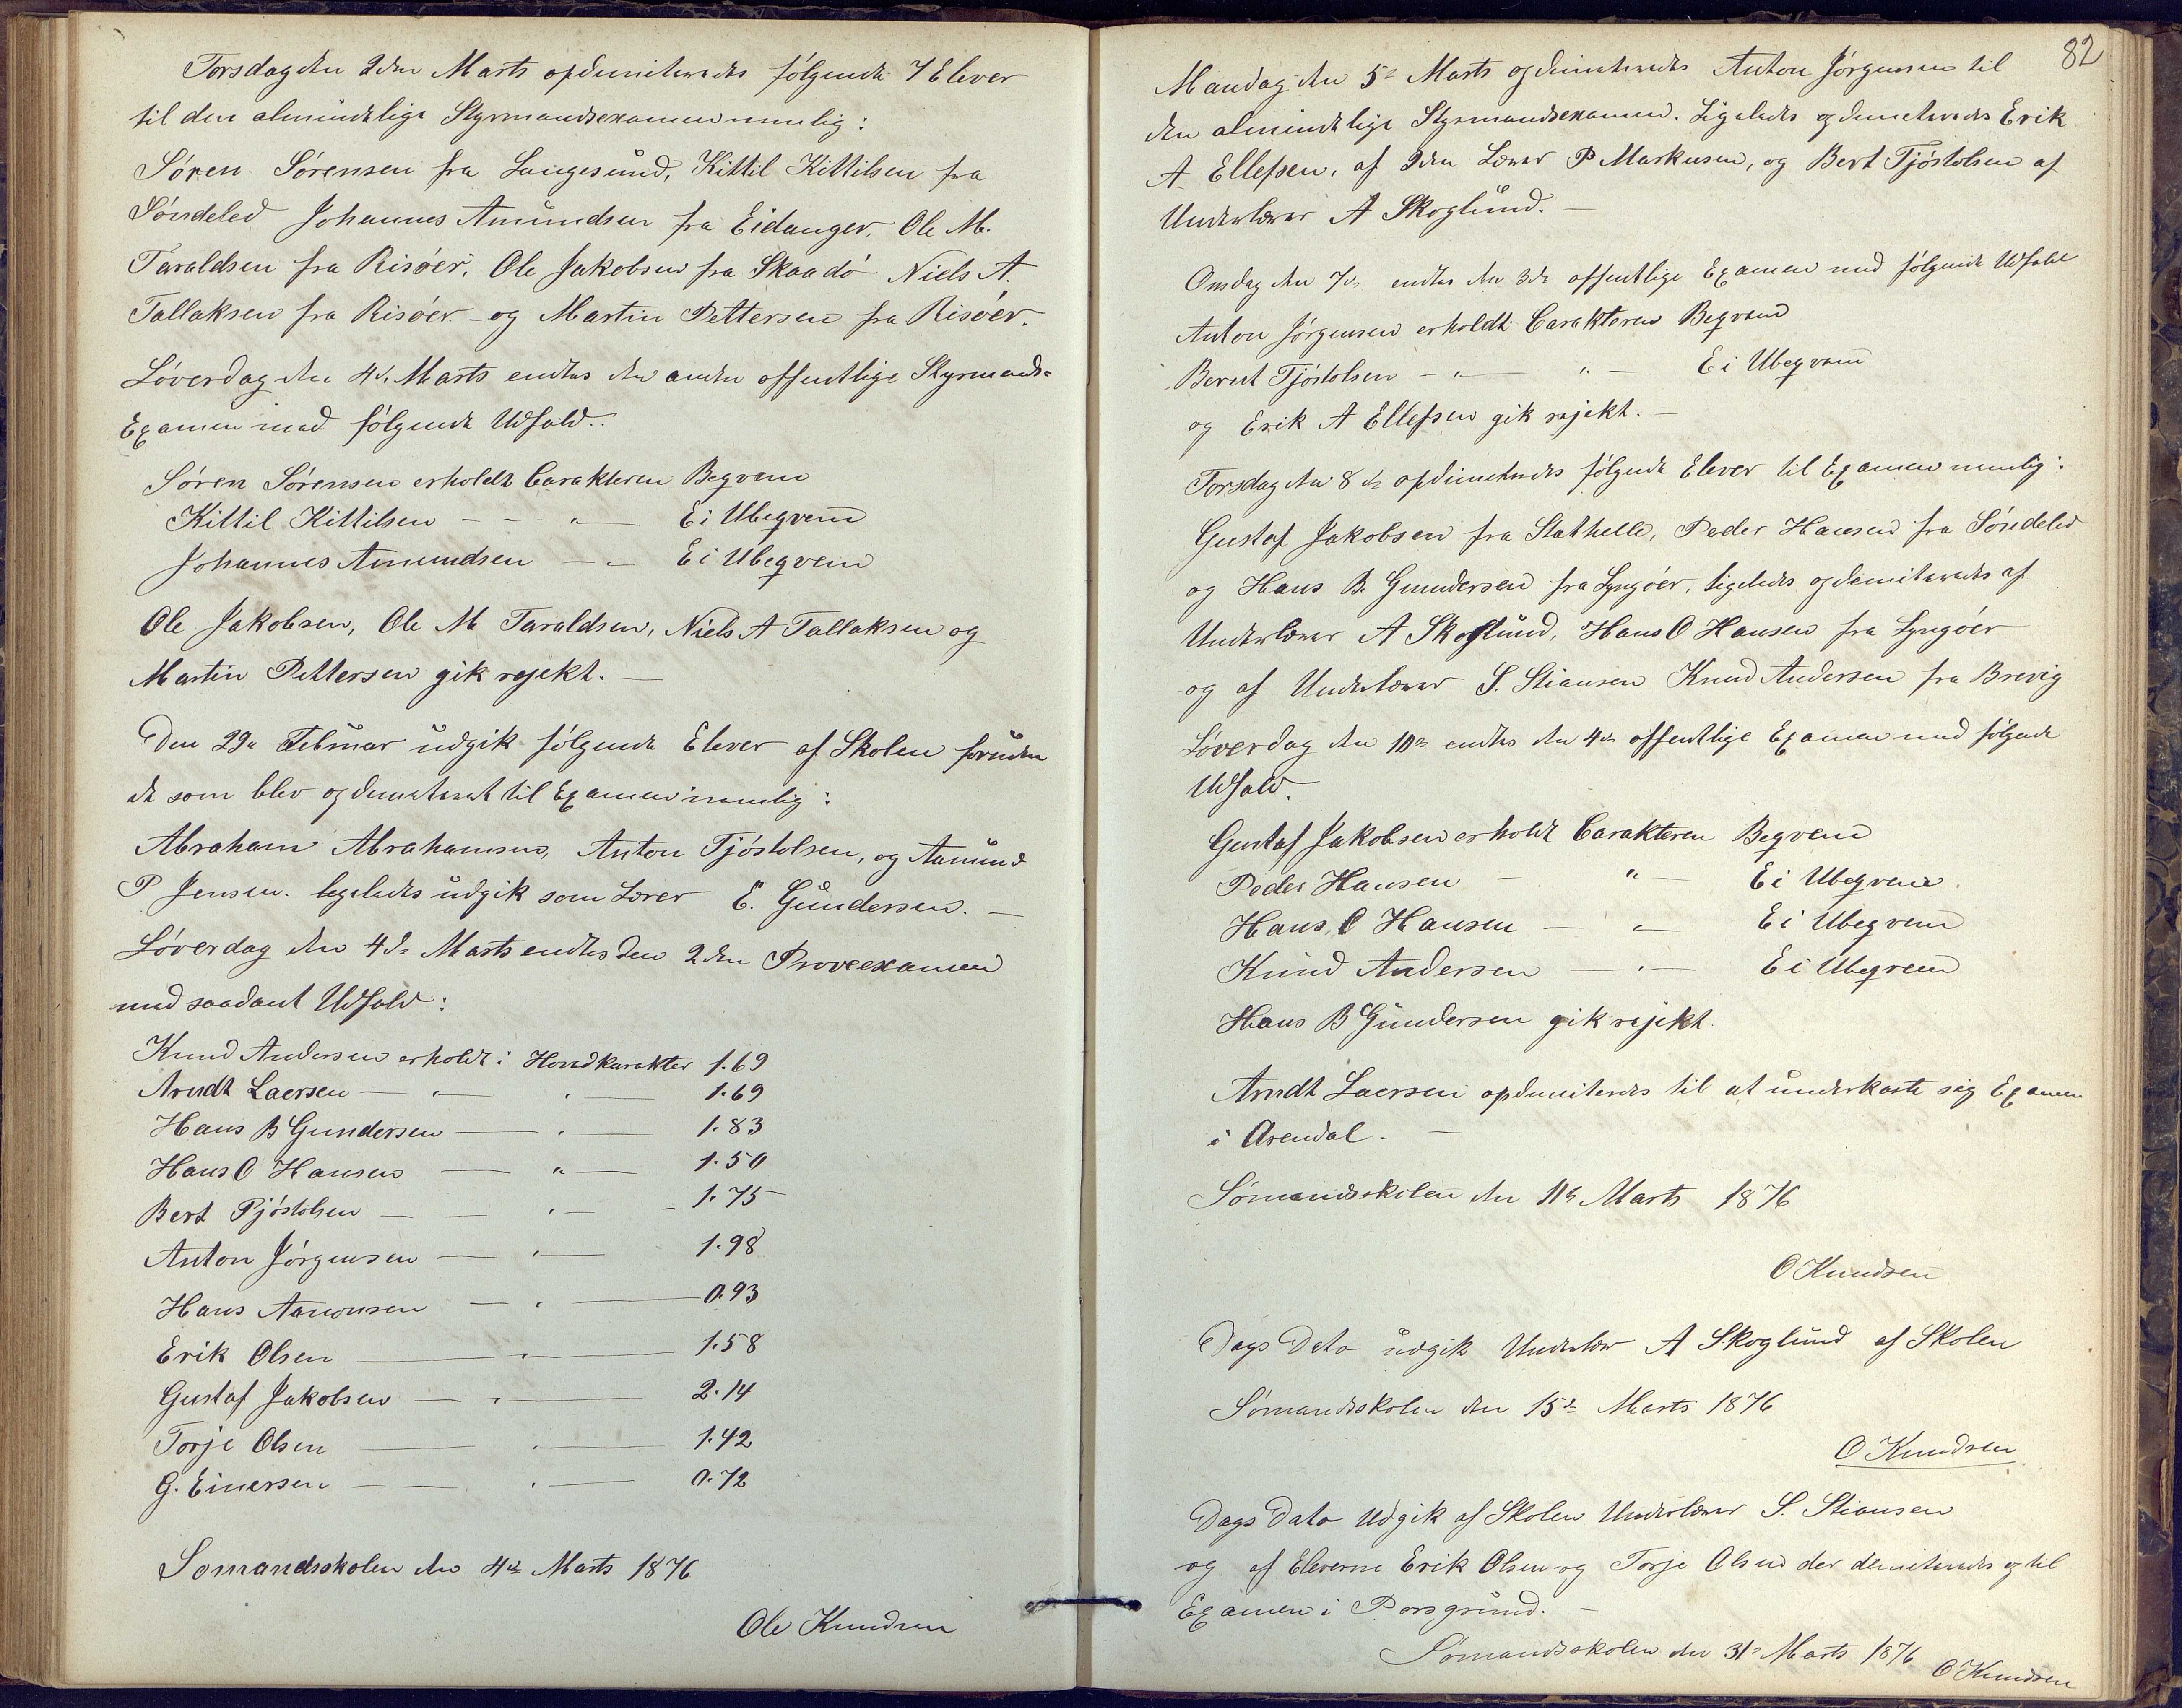 Torsdag den 2den Marts opdimiteredes følgende 7 Elever
til den almindelige Styrmandsexamen nemlig:
Søren Sørensen fra Langesund, Kittil Kittilsen fra
Søndeled Johannes Amundsen fra Eidanger, Ole M.
Taraldsen fra Risøer, Ole Jakobsen fra Skaadø Niels A.
Tallaksen fra Risøer – og Martin Pettersen fra Risøer.
Løverdag den 4de Marts endtes den anden offentlige Styrmands-
Examen med følgende Udfald.
Søren Sørensen erholdt Carakteren Beqvem
Kittil Kittilsen – – " Ei Ubeqvem
Johannes Amundsen – " – Ei Ubeqvem
Ole Jakobsen, Ole M Taraldsen, Niels A Tallaksen og
Martin Pettersen gik rejekt. –
Den 29de Februar udgik følgende Elever af Skolen foruden
de som blev opdimiteret til Examen nemlig:
Abraham Abrahamsen, Anton Tjøstolsen, og Aamund
P Jensen. ligeledes udgik som Lærer E. Gundersen. –
Løverdag den 4de Marts endtes den 2den Prøveexamen
med saadant Udfald:
Knud Andersen erholdt: Hovedkarakter 1.69
Arndt Laersen – " – " – 1.69
Hans B Gundersen – " – 1.83
Hans O Hansen – " – 1.50
Bert Tjøstolsen – – " – – 1.75
Anton Jørgensen – " – 1.98
Hans Aanonsen – " – 0.93
Erik Olsen – " – 1.58
Gustaf Jakobsen – " – 2.14
Torje Olsen – " – 1.42
G. Einersen – – " – 0.72
Sømandsskolen den 4de Marts 1876
Ole Knudsen
82
Mandag den 5te Marts opdimiteredes Anton Jørgensen til
den almindelige Styrmandsexamen. Ligeledes opdimiteredes Erik
A Ellefsen, af 2den Lærer P Markusen, og Bert Tjøstolsen af
Underlærer A Skoglund. –
Onsdag den 7de endtes den 3die offentlige Examen med følgende Udfald
Anton Jørgensen erholdt Carakteren Beqvem
Berent Tjøstolsen – " – " – Ei Ubeqvem
og Erik A Ellefsen gik rejekt. –
Torsdag den 8de opdimiteredes følgende Elever til Examen nemlig:
Gustaf Jakobsen fra Stathelle, Peder Hansen fra Søndeled
og Hans B. Gundersen fra Lyngøer, ligeledes opdimiteredes af
Underlærer A Skoglund, Hans O Hansen fra Lyngøer
og af Underlærer S. Stiansen Knud Andersen fra Brevig
Løverdag den 10de endtes den 4de offentlige Examen med følgende
Udfald.
Gustaf Jakobsen erholdt Carakteren Beqvem
Peder Hansen – " – Ei Ubeqvem
Hans O Hansen – " – Ei Ubeqvem
Knud Andersen – " – Ei Ubeqvem
Hans B Gundersen gik rejekt.
Arndt Laersen opdimiteres til at underkaste sig Examen
i Arendal. –
Sømandsskolen den 11te Marts 1876
O Knudsen
Dags Dato udgik Underlær A Skoglund af Skolen
Sømandsskolen den 15de Marts 1876
O Knudsen
Dags Dato Udgik af Skolen Underlærer S. Stiansen
og af Eleverne Erik Olsen og Torje Olsen der dimiteredes op til
Examen i Porsgrund. –
Sømandsskolen den 31te Marts 1876 O Knudsen